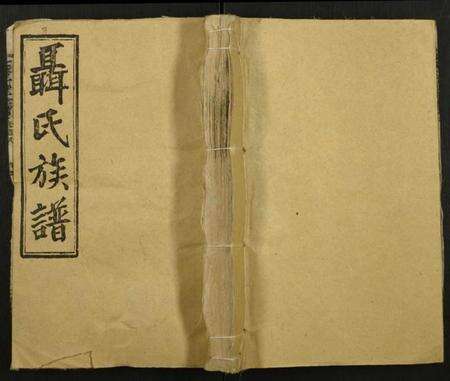 聶氏族譜